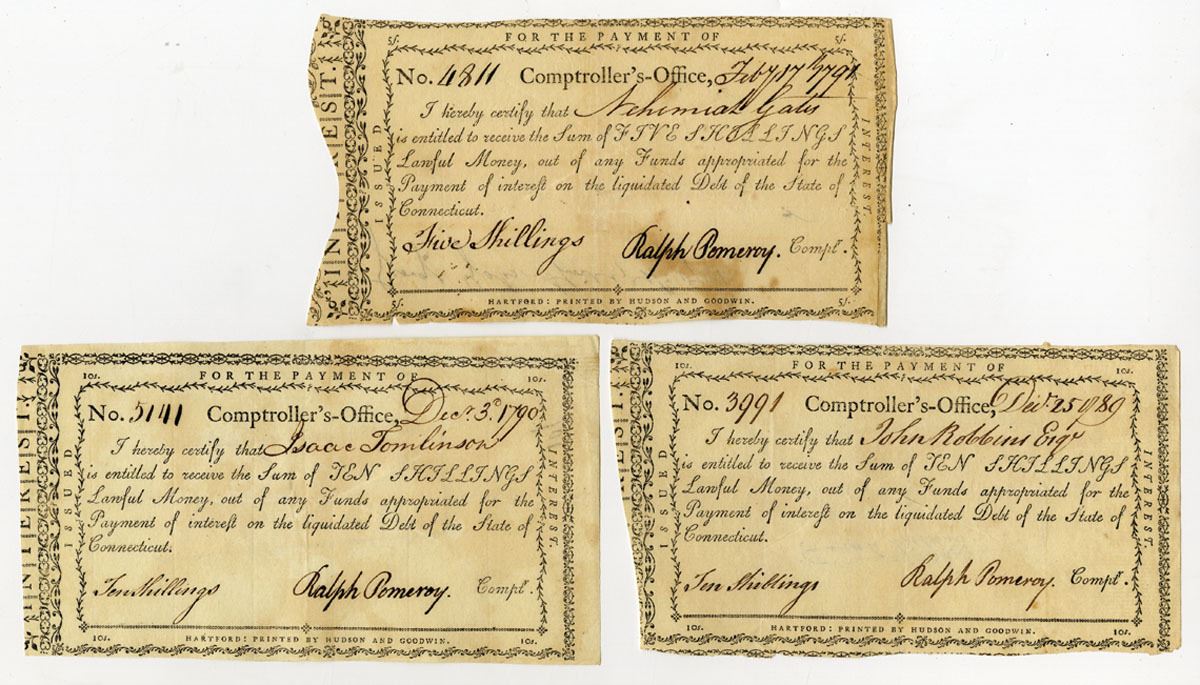 5ʃ. FOR THE PAYMENT OF 5ʃ.
No. 4811 Comptroller's-Office, Feby 17th 1791
I hereby certify that Nehemiah Gates
is entitled to receive the Sum of FIVE SHILLINGS
Lawful Money, out of any Funds appropriated for the
Payment of intereſt on the liquidated Debt of the State of
Connecticut.
Five Shillings Ralph Pomeroy. Comptr.
HARTFORD: PRINTED BY HUDSON AND GOODWIN.
5ʃ. 5ʃ.
ISSUED
INTEREST.
10s. FOR THE PAYMENT OF 10s.
No. 5141 Comptroller's-Office, Decr. 3d. 1790
I hereby certify that Isaac Tomlinson
is entitled to receive the Sum of TEN SHILLINGS
Lawful Money, out of any Funds appropriated for the
Payment of intereſt on the liquidated Debt of the State of
Connecticut.
Ten Shillings Ralph Pomeroy. Comptr.
10s. HARTFORD: PRINTED BY HUDSON AND GOODWIN. 10s.
ISSUED
INTEREST.
10s. FOR THE PAYMENT OF 10s.
No. 3991 Comptroller's-Office, 25 89
I hereby certify that John Robbins Esqr
is entitled to receive the Sum of TEN SHILLINGS
Lawful Money, out of any Funds appropriated for the
Payment of intereſt on the liquidated Debt of the State of
Connecticut.
Ten Shillings Ralph Pomeroy. Comptr.
10s. HARTFORD: PRINTED BY HUDSON AND GOODWIN. 10s.
ISSUED
INTEREST.